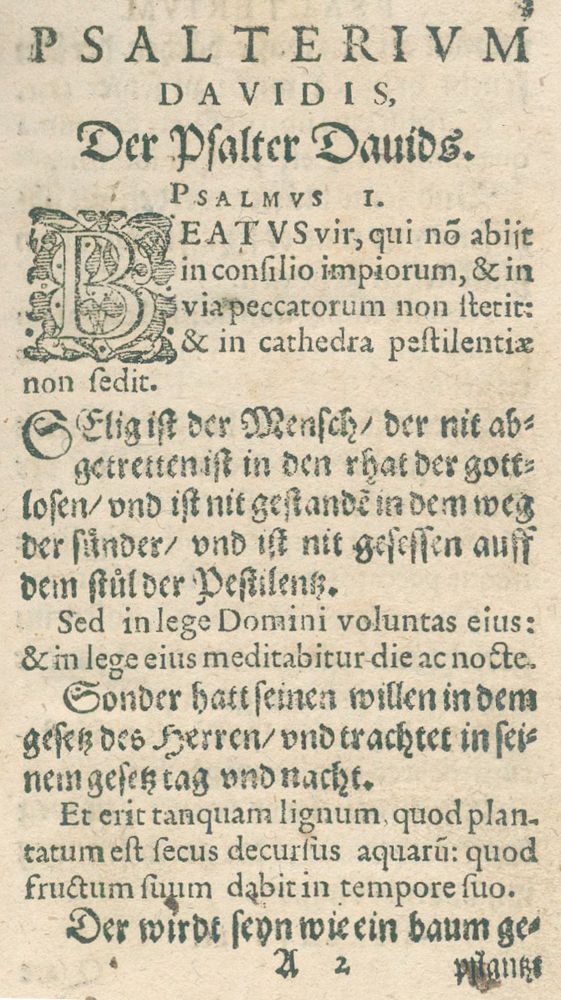 3
PSALTERIVM
DAVIDIS,
Der Psalter Dauids.
PSALMVS I.
BEATVS vir, qui nō abijt
in consilio impiorum, & in
via peccatorum non stetit:
& in cathedra pestilentiæ
non sedit.
SElig ist der Mensch/ der nit ab-
getretten ist in den rhat der gott-
losen/ vnd ist nit gestandē in dem weg
der sünder/ vnd ist nit gesessen auff
dem stůl der Pestilentz.
Sed in lege Domini voluntas eius:
& in lege eius meditabitur die ac nocte.
Sonder hatt seinen willen in dem
gesetz des Herren/ vnd trachtet in sei-
nem gesetz tag vnd nacht.
Et erit tanquam lignum, quod plan-
tatum est secus decursus aquarū: quod
fructum suum dabit in tempore suo.
Der wirdt seyn wie ein baum ge-
A 2 pflantzt